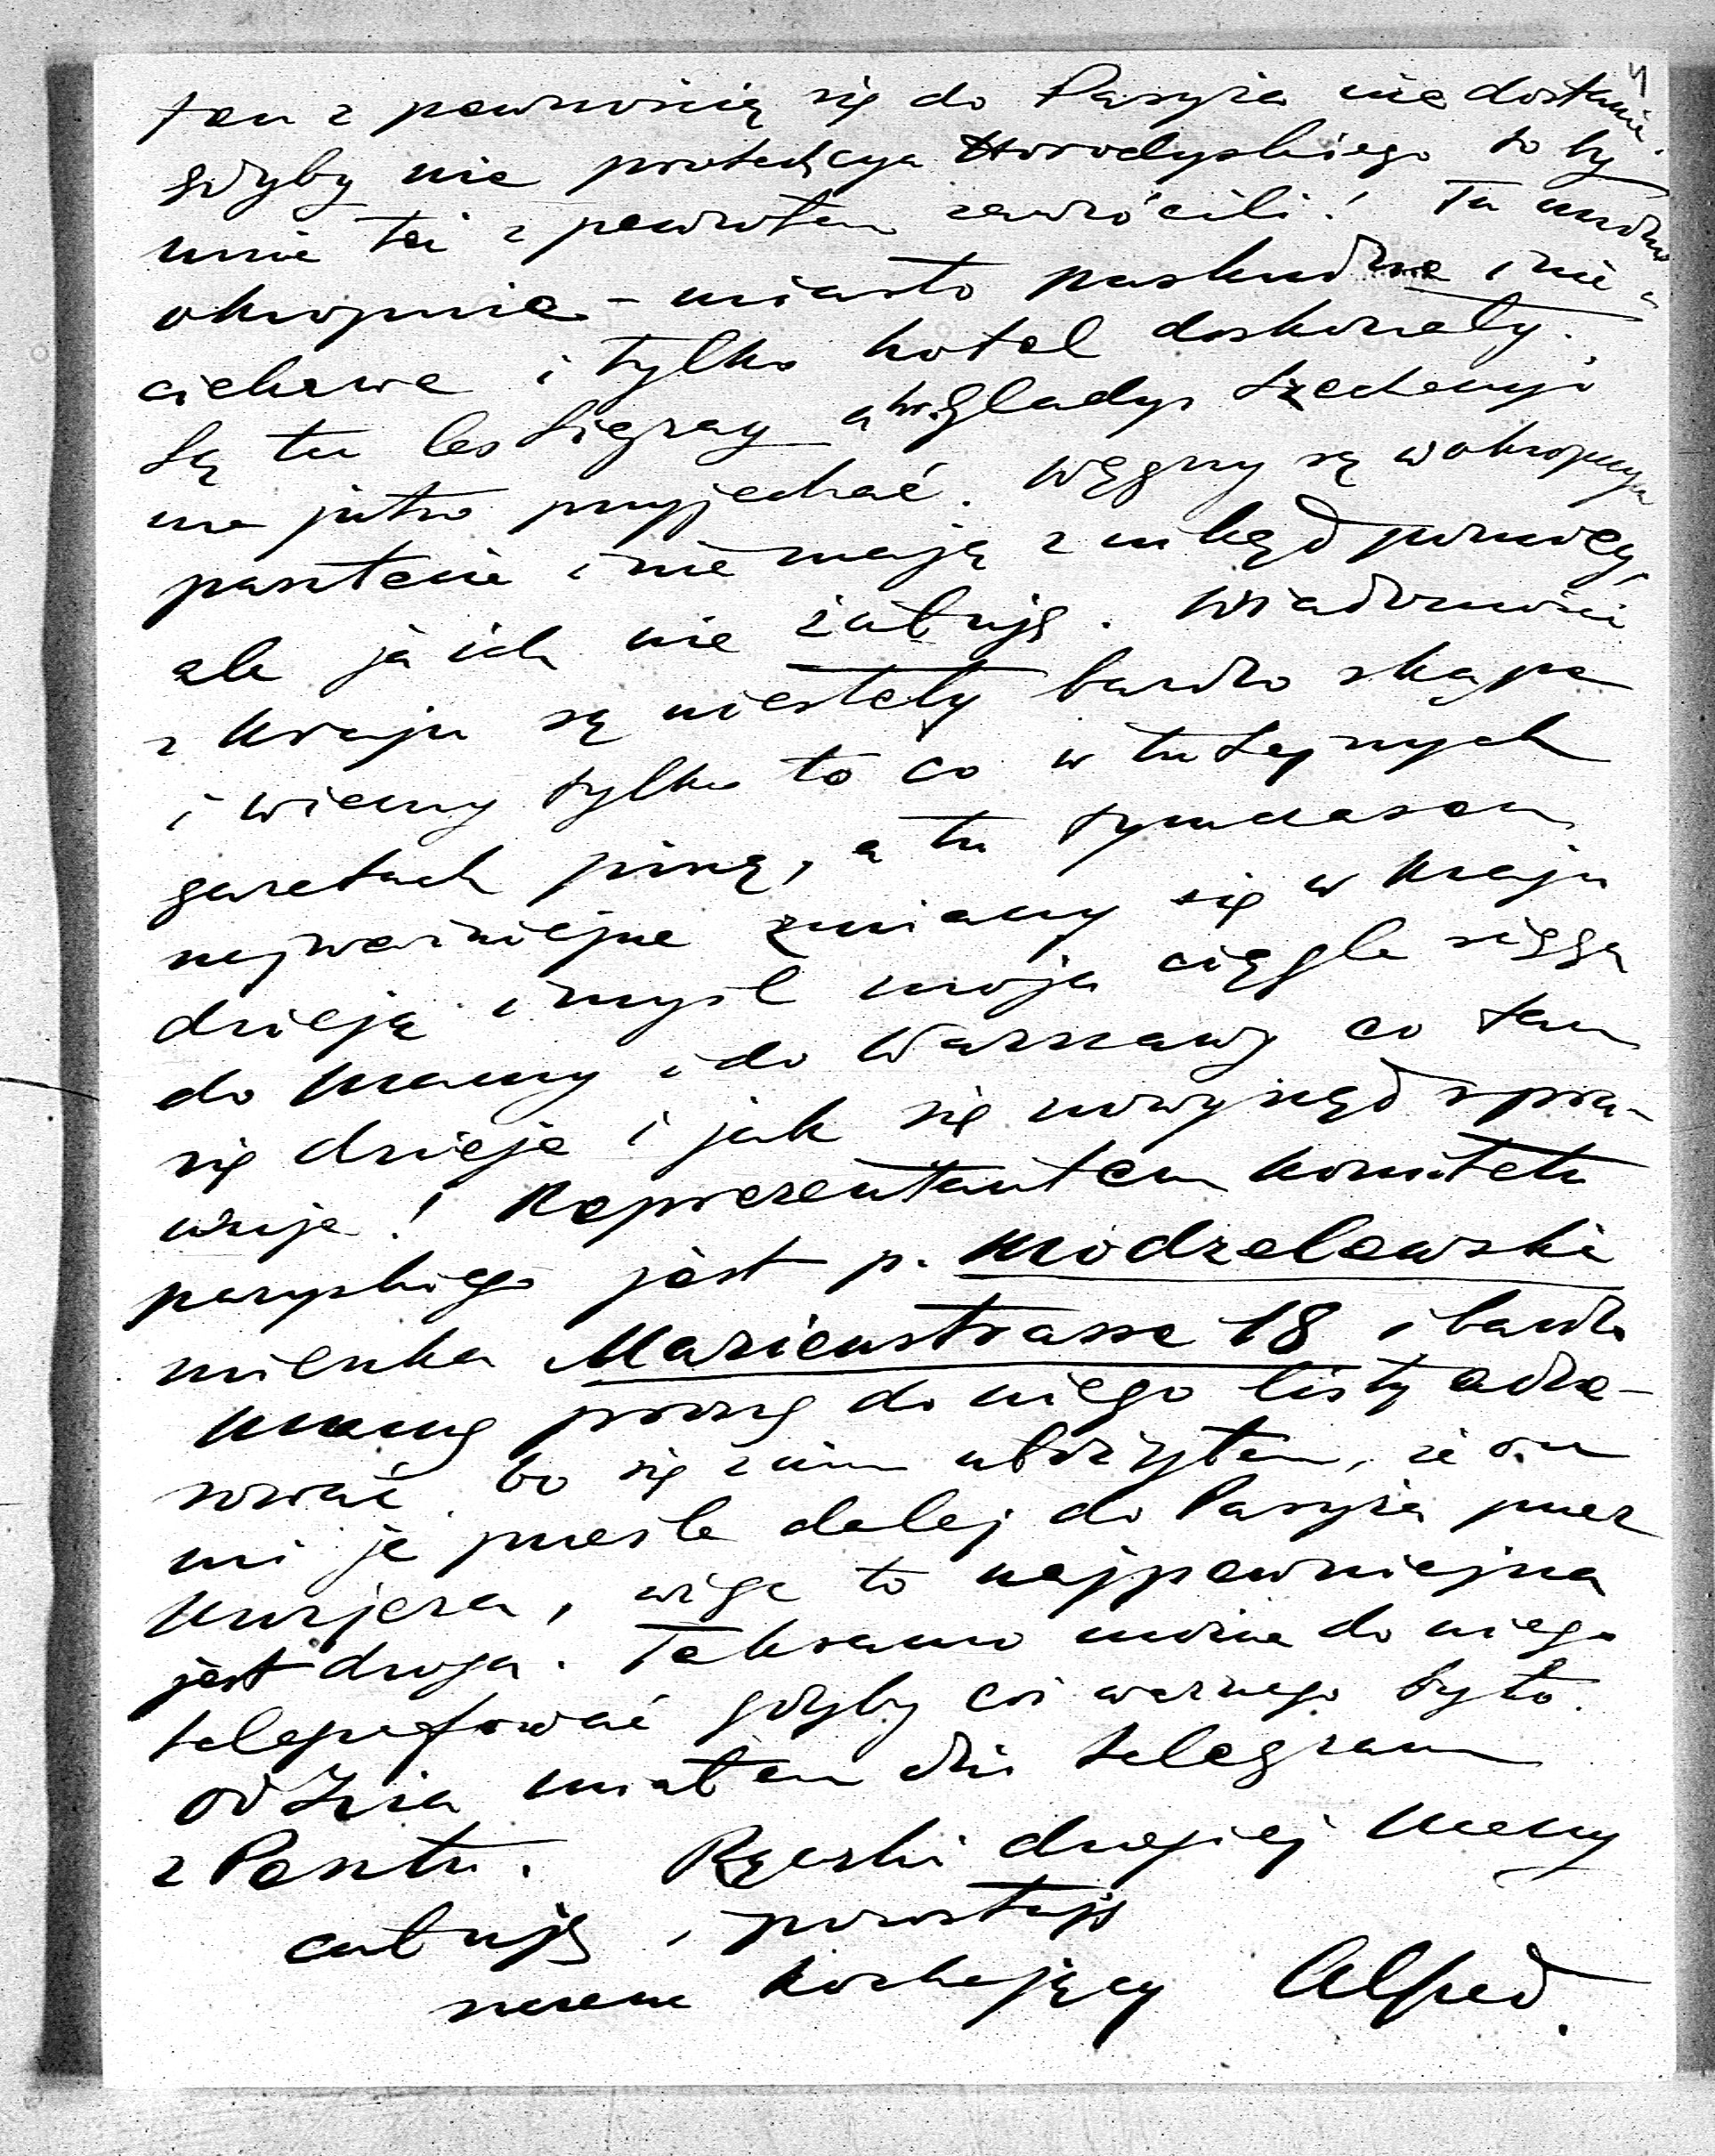 4
ten z pewnością się do Paryża nie dostanie.
gdyby nie protekcya Horodyskiego to by
mnie też z powrotem zawrócili! Tu nudno
okropnie – miasto paskudne i nie-
ciekawe i tylko hotel doskonały.
Są tu les Sigray a hr. Gladys Szechenyi
ma jutro przyjechać. Węgry są w okropnym
pasztecie i nie mają znikąd pomocy,
ale ja ich nie żałuję. Wiadomości
z kraju są niestety bardzo skąpe
i wiemy tylko to co w tutejszych
gazetach piszą, a tu tymczasem
najważniejsze zmiany się w kraju
dzieją i myśl moja ciągle sięga
do Mamy i do Warszawy co tam
się dzieje i jak się nowy rząd spra-
wuje! Reprezentantem Komitetu
paryskiego jest p. Modzelewski
mieszka Marienstrasse 18 i bardzo
Mamę proszę do niego listy adre-
sować bo się z nim ułożyłem, że on
mi je prześle dalej do Paryża przez
Kurjera, więc to najpewniejsza
jest droga. Taksamo można do niego
telegrafować gdyby coś ważnego było.
Od miałem dziś telegram
z Pesztu. Rączki drogiej Mamy
całuję i pozostaję
szczerze kochający Alfred.